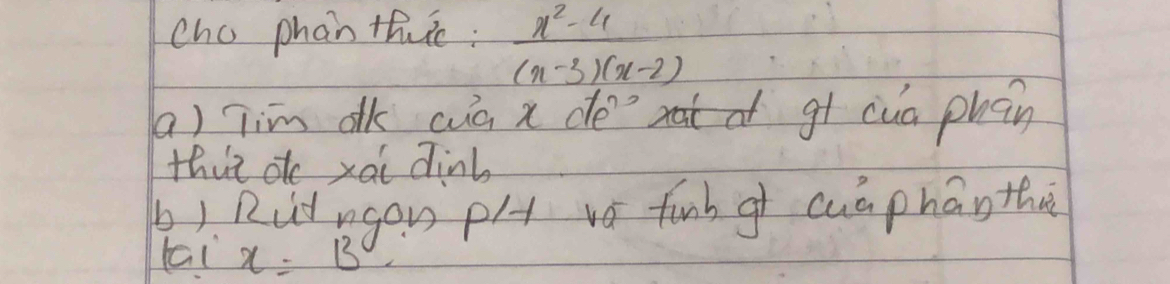 cho phân thức : x² - 4 / (x - 3)(x - 2)
a) Tìm đk của x để gt của phân
thức đc xác định
b) Rút ngọn p/t và tính gt của phân thức
tại x = 13.